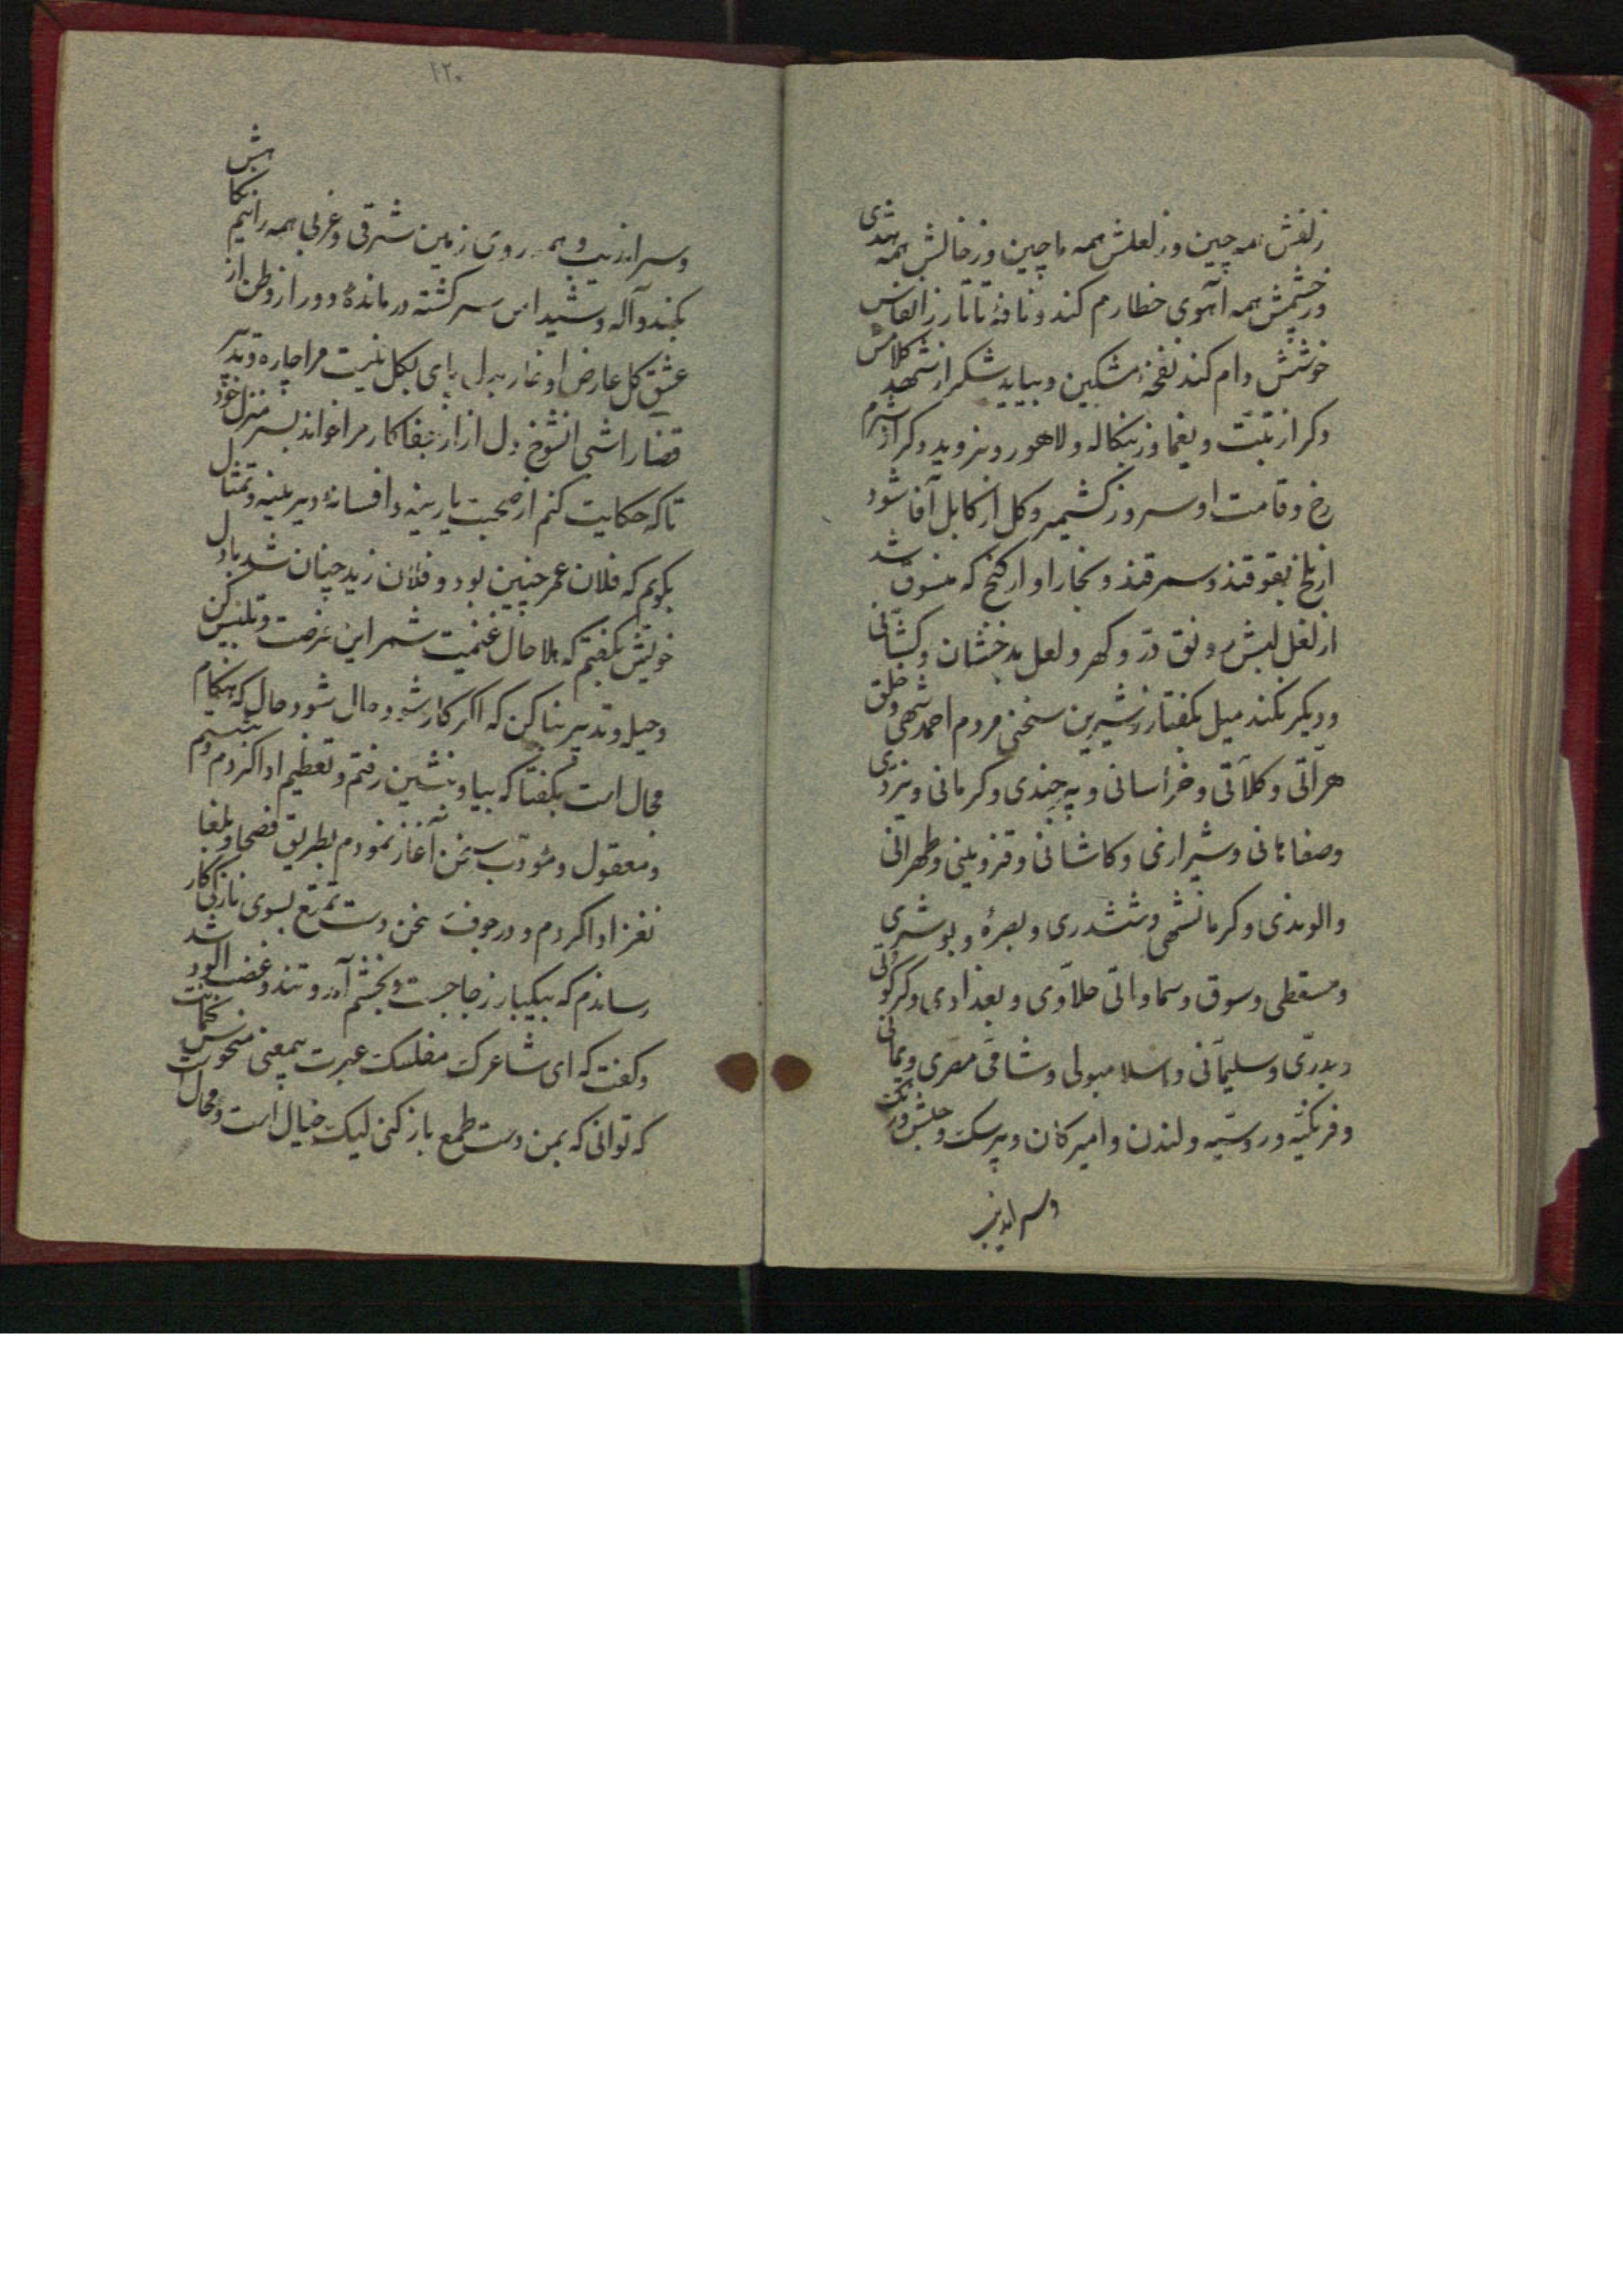 زلفش همه چین وز لعلش همه ماچین وز خالش همه هندی
وز چشمش همه آهوی خطا رم کند و نافهٔ تاتار ز انفاس
خوشش وام کند نفحهٔ مشکین و بیاید شکر از شهد کلامش
دکر از تبت و یغما وز بنکاله و لاهور و نیز وید وکر از شرم
رخ و قامت او سرو ز کشمیر و کل از کابل آفا شود
از بلخ بقوقند و سمرقند و بخارا و ارکنج که منسوق شد
از لعل لبش رونق در و کهر و لعل بدخشان و کشانی
و دیکر نکند میل بکفتار ز شیرین سخنی مردم احمدشهی و خلق
هراتی و کلاتی و خراسانی و بیرجندی و کرمانی و یزدی
وصفاهانی و شیرازی و کاشانی و قزوینی و طهرانی
والوندی و کرمانشهی و ششدری و بصرهٔ و بوشهری
ومسقطی و سوق و سماواتی حلاوی و بغدادی و کرکوکی
و بدری و سلیمانی و اسلامبولی و شاقی مصری و یمانی
و فرنکیه و روسیه و لندن و امیرکان و پیرسک و حبش و زنک
وسراندیب
۱۲۰
وسراندیب و همه روی زمین شرقی و غربی همه را نیم نکاهش
بکند واله و شیدا من سرکشته درماندهٔ دور از وطن از
عشق کل عارض او خار بدل پای بکل نیست مرا چاره و تدبیر
قضا را شبی انشوخ دل ازار جفاکار مرا خواند بسر منزل خود
تا که حکایت کنم از صحبت پارینه و افسانهٔ دیرینه و تمثال
بکویم که فلان عمر چنین بود و فلان زید چنان شد با دل
خویش بکفتم که هلا حال غنیمت شمر این فرصت و تلبیس کن
وحیل و تدبیر بنا کن که اکر کار شود مال شود حال که هنکام
مجال است بکفتا که بیا و بنشین رفتم و تعظیم ادا کردم و بنشستم
و معقول و مؤدب سخن آغاز نمودم بطریق فصحا و بلغا
نغز ادا کردم و در جوف سخن دست تمتع بسوی نازکی کار
رساندم که بیکبار ز جا جست و بخشم آمد و تند و غضب آلود شد
و کفت که ای شاعرک مفلسک عبرت بیمعنی منحوس نجاست
که توانی که بمن دست طمع باز کنی لیک خیال است و محال